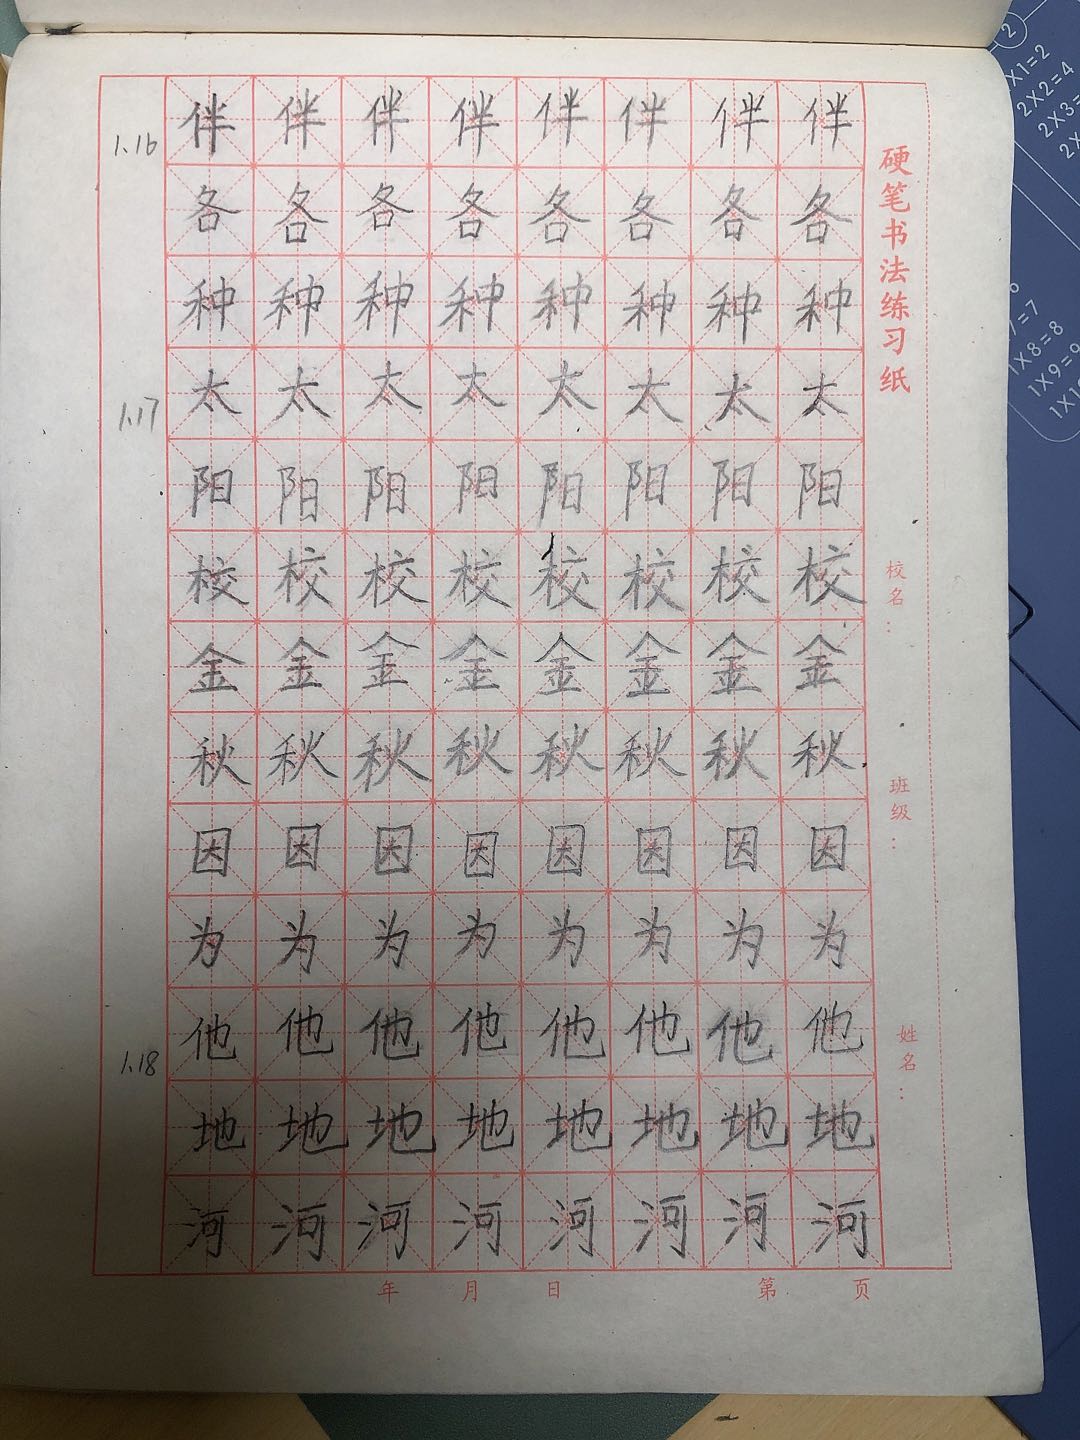 1.16
伴伴伴伴伴伴伴伴
各各各各各各各各
种种种种种种种种
1.17
太太太太太太太太
阳阳阳阳阳阳阳阳
校校校校校校校校
金金金金金金金金
秋秋秋秋秋秋秋秋
因因因因因因因因
为为为为为为为为
1.18
他他他他他他他他
地地地地地地地地
河河河河河河河河
硬笔书法练习纸
校名：
班级：
姓名：
年 月 日 第 页
2
2X2=4
1X8=8